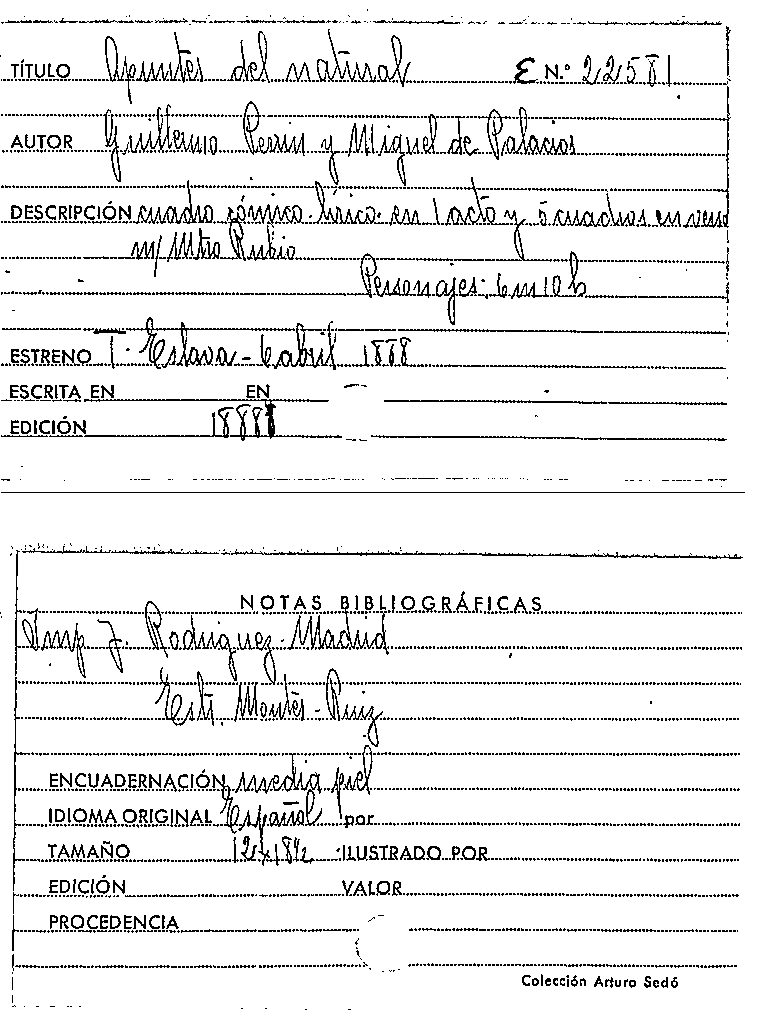 TÍTULO Apuntes del natural E N.º 22581
AUTOR Guillermo Perrin y Miguel de Palacios
DESCRIPCIÓN cuadro cómico-lírico en 1 acto y 5 cuadros en verso
m/ Mtro Rubio
Personajes: 6 m 10 h
ESTRENO T. Eslava - 6 abril 1888
ESCRITA EN EN
EDICIÓN 1888
NOTAS BIBLIOGRÁFICAS
Imp J. Rodriguez - Madrid
Estr. Montes - Ruiz
ENCUADERNACIÓN media piel
IDIOMA ORIGINAL Español por
TAMAÑO 12x18½ ILUSTRADO POR
EDICIÓN VALOR
PROCEDENCIA
Colección Arturo Sedó